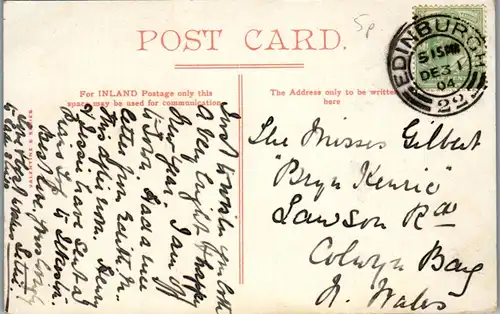 5p
POST CARD.
EDINBURGH
5 15 PM
DE 31
04
22
For INLAND Postage only this
space may be used for communication.
The Address only to be written
here
VALENTINE'S SERIES
Just to wish you both
a very bright & happy
New Year. I am off
to town. Had a nice
letter from Edith M.
this afternoon. Henry
& Jessie have sent a
The Misses Gilbert
"Bryn Kenric"
Lawson Rd
Colwyn Bay
N. Wales